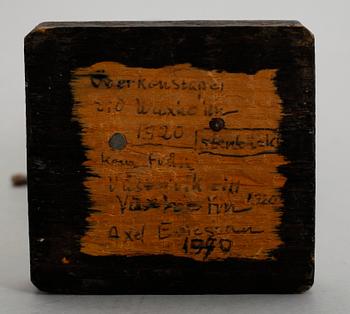 Överkonstapel
vid Waxholm
1920 Stenbock
kom från
Västervik till
Vaxholm 1920
Axel Ericsson
1940